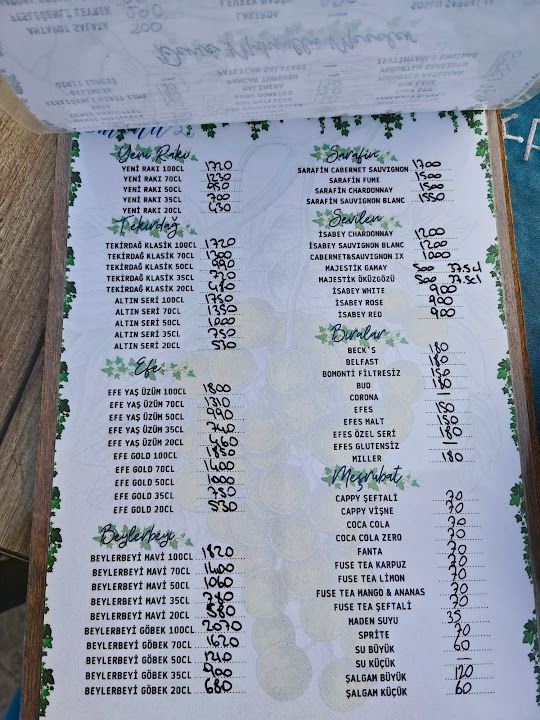 LAKERDA
300
Yeni Rakı
YENİ RAKI 100CL 1720
YENİ RAKI 70CL 1230
YENİ RAKI 50CL 950
YENİ RAKI 35CL 700
YENİ RAKI 20CL 430
Tekirdağ
TEKİRDAĞ KLASİK 100CL 1720
TEKİRDAĞ KLASİK 70CL 1300
TEKİRDAĞ KLASİK 50CL 990
TEKİRDAĞ KLASİK 35CL 720
TEKİRDAĞ KLASİK 20CL 480
ALTIN SERİ 100CL 1750
ALTIN SERİ 70CL 1350
ALTIN SERİ 50CL 1000
ALTIN SERİ 35CL 750
ALTIN SERİ 20CL 530
Efe
EFE YAŞ ÜZÜM 100CL 1800
EFE YAŞ ÜZÜM 70CL 1310
EFE YAŞ ÜZÜM 50CL 990
EFE YAŞ ÜZÜM 35CL 740
EFE YAŞ ÜZÜM 20CL 460
EFE GOLD 100CL 1850
EFE GOLD 70CL 1400
EFE GOLD 50CL 1000
EFE GOLD 35CL 750
EFE GOLD 20CL 530
Beylerbeyi
BEYLERBEYİ MAVİ 100CL 1820
BEYLERBEYİ MAVİ 70CL 1400
BEYLERBEYİ MAVİ 50CL 1060
BEYLERBEYİ MAVİ 35CL 780
BEYLERBEYİ MAVİ 20CL 580
BEYLERBEYİ GÖBEK 100CL 2070
BEYLERBEYİ GÖBEK 70CL 1620
BEYLERBEYİ GÖBEK 50CL 1210
BEYLERBEYİ GÖBEK 35CL 900
BEYLERBEYİ GÖBEK 20CL 680
Sarafin
SARAFIN CABERNET SAUVIGNON 1700
SARAFIN FUME 1500
SARAFIN CHARDONNAY 1500
SARAFIN SAUVIGNON BLANC 1550
Sevilen
İSABEY CHARDONNAY 1200
İSABEY SAUVIGNON BLANC 1200
CABERNET&SAUVIGNON IX 1000
MAJESTİK GAMAY 500 37.5cl
MAJESTİK ÖKÜZGÖZÜ 500 37.5cl
İSABEY WHITE 900
İSABEY ROSE 900
İSABEY RED 900
Biralar
BECK'S 180
BELFAST 180
BOMONTI FİLTRESİZ 150
BUD 180
CORONA —
EFES 180
EFES MALT 180
EFES ÖZEL SERİ 180
EFES GLUTENSIZ —
MILLER 180
Meşrubat
CAPPY ŞEFTALİ 70
CAPPY VİŞNE 70
COCA COLA 70
COCA COLA ZERO 70
FANTA 70
FUSE TEA KARPUZ 70
FUSE TEA LİMON 70
FUSE TEA MANGO & ANANAS 70
FUSE TEA ŞEFTALİ 70
MADEN SUYU 35
SPRİTE 70
SU BÜYÜK 60
SU KÜÇÜK —
ŞALGAM BÜYÜK 120
ŞALGAM KÜÇÜK 60